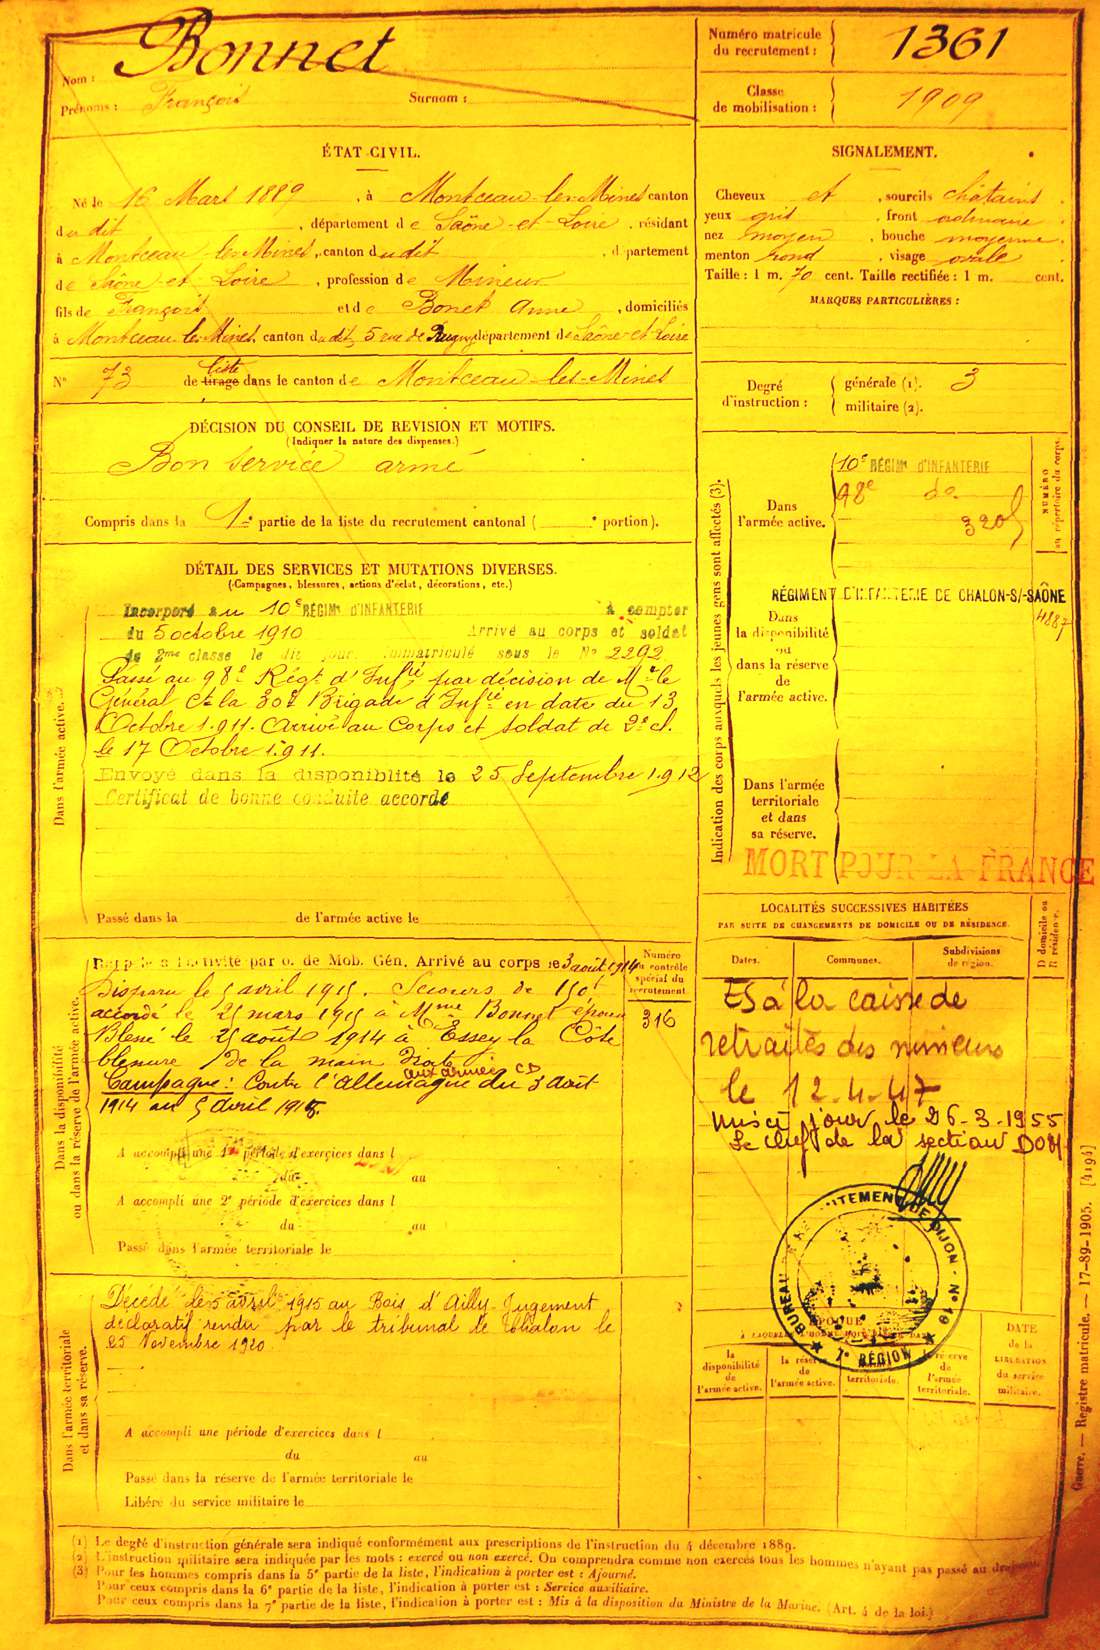 Nom : Bonnet
Prénoms : François Surnom :
Numéro matricule du recrutement : 1361
Classe de mobilisation : 1909
ÉTAT CIVIL.
Né le 16 Mars 1889, à Montceau-les-Mines canton
dudit, département de Saône-et-Loire, résidant
à Montceau-les-Mines, canton dudit, département
de Saône-et-Loire, profession de Mineur
fils de François et de Bonet Anne, domiciliés
à Montceau-les-Mines, canton dudit, 5 rue de département de Saône-et-Loire
N° 73 de tirage liste dans le canton de Montceau-les-Mines
SIGNALEMENT.
Cheveux et, sourcils châtains.
yeux gris, front ordinaire.
nez moyen, bouche moyenne.
menton rond, visage ovale.
Taille : 1 m. 70 cent. Taille rectifiée : 1 m. cent.
MARQUES PARTICULIÈRES :
Degré d'instruction : générale (1). 3
militaire (2).
DÉCISION DU CONSEIL DE REVISION ET MOTIFS.
(Indiquer la nature des dispenses.)
Bon service armé
Compris dans la 1e partie de la liste du recrutement cantonal ( e portion).
DÉTAIL DES SERVICES ET MUTATIONS DIVERSES.
(Campagnes, blessures, actions d'éclat, décorations, etc.)
Dans l'armée active.
Incorporé au 10e RÉGIMt D'INFANTERIE à compter
du 5 octobre 1910 Arrivé au corps et soldat
de 2me classe le dit jour. Immatriculé sous le No 2292
Passé au 98e Régt d'Infrie par décision de Mr le
Général Ct la 50e Brigade d'Infrie en date du 13
Octobre 1911. Arrivé au Corps et soldat de 2e cl.
le 17 Octobre 1911.
Envoyé dans la disponiblité le 25 Septembre 1912
Certificat de bonne conduite accordé
Passé dans la de l'armée active le
Indication des corps auxquels les jeunes gens sont affectés (3).
NUMÉRO au répertoire du corps.
Dans l'armée active.
10e RÉGIMt D'INFANTERIE
98e do
3205
RÉGIMENT D'INFANTERIE DE CHALON-S/-SAÔNE
4887
Dans la disponibilité ou dans la réserve de l'armée active.
Dans l'armée territoriale et dans sa réserve.
MORT POUR LA FRANCE
Dans la disponibilité ou dans la réserve de l'armée active.
Rappelé à l'activité par o. de Mob. Gén. Arrivé au corps le 3 août 1914
Disparu le 5 avril 1915. Secours de 150f
accordé le 25 mars 1915 à Mme Bonnet épouse
Blessé le 25 août 1914 à Essey la Côte
blessure de la main droite
aux armées CD
Campagne : Contre l'Allemagne du 3 Août
1914 au 5 Avril 1915.
Numéro au contrôle spécial du recrutement
316
A accompli une 1re période d'exercices dans l
du au
A accompli une 2e période d'exercices dans l
du au
Passé dans l'armée territoriale le
LOCALITÉS SUCCESSIVES HABITÉES
PAR SUITE DE CHANGEMENTS DE DOMICILE OU DE RÉSIDENCE.
Dates. Communes. Subdivisions de région. D domicile ou R résidence.
ES à la caisse de
retraites des mineurs
le 12.4.47
mise à jour le 26-3-1955
Le chef de la section DOM
BUREAU DE RECRUTEMENT DE DIJON - No 19
7e RÉGION
Dans l'armée territoriale et dans sa réserve.
Décédé le 5 avril 1915 au Bois d'Ailly. Jugement
déclaratif rendu par le tribunal de Chalon le
25 Novembre 1920
A accompli une période d'exercices dans l
du au
Passé dans la réserve de l'armée territoriale le
Libéré du service militaire le
ÉPOQUE
À LAQUELLE L'HOMME DOIT PASSER DANS
la disponibilité de l'armée active.
la réserve de l'armée active.
territoriale.
réserve de l'armée territoriale.
DATE de la LIBÉRATION du service militaire.
(1) Le degré d'instruction générale sera indiqué conformément aux prescriptions de l'instruction du 4 décembre 1889.
(2) L'instruction militaire sera indiquée par les mots : exercé ou non exercé. On comprendra comme non exercés tous les hommes n'ayant pas passé au drapeau.
(3) Pour les hommes compris dans la 5e partie de la liste, l'indication à porter est : Ajourné.
Pour ceux compris dans la 6e partie de la liste, l'indication à porter est : Service auxiliaire.
Pour ceux compris dans la 7e partie de la liste, l'indication à porter est : Mis à la disposition du Ministre de la Marine. (Art. 4 de la loi.)
Guerre. — Registre matricule. — 17-89-1905. [4194]